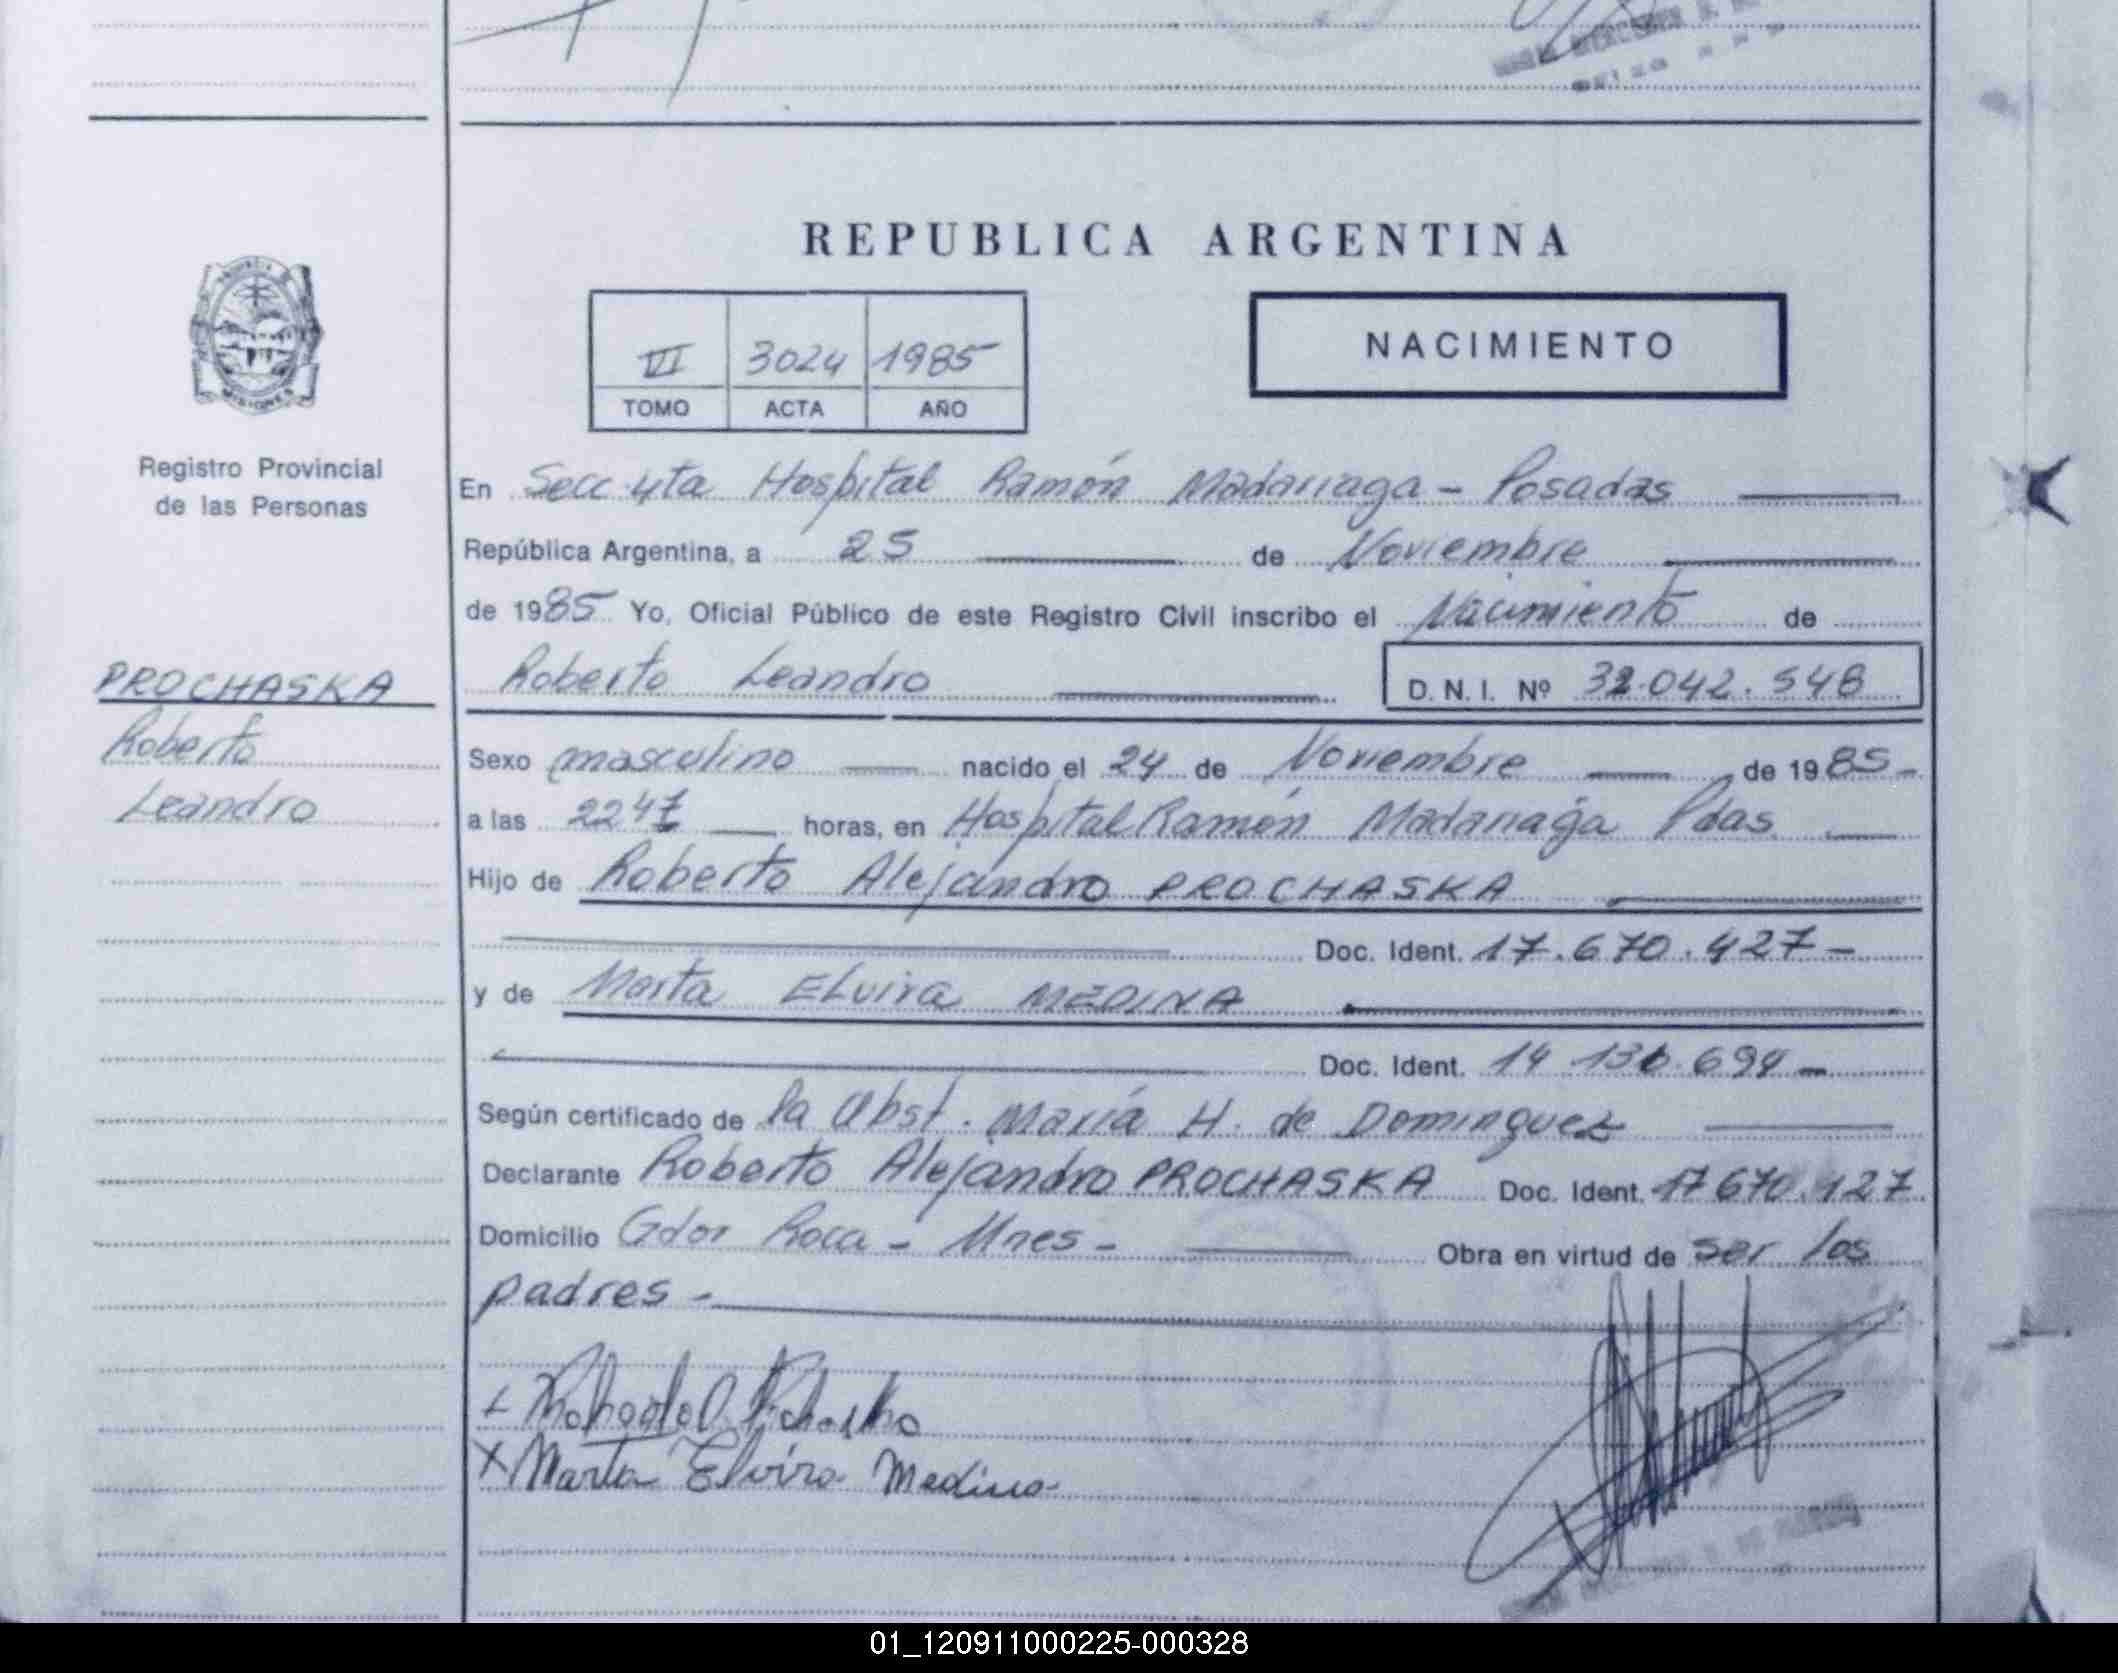 REPUBLICA ARGENTINA
VI 3024 1985
TOMO ACTA AÑO
NACIMIENTO
MISIONES
Registro Provincial
de las Personas
PROCHASKA
Roberto
Leandro
En Secc 4ta Hospital Ramón Madariaga - Posadas
República Argentina, a 25 de Noviembre
de 1985 Yo, Oficial Público de este Registro Civil inscribo el Nacimiento de
Roberto Leandro D. N. I. Nº 32.042.548
Sexo masculino nacido el 24 de Noviembre de 1985-
a las 2247 horas, en Hospital Ramón Madariaga Pdas
Hijo de Roberto Alejandro PROCHASKA
Doc. Ident. 17.670.427-
y de Marta ELvira MEDINA
Doc. Ident. 14 136.694-
Según certificado de la Obst. María H. de Dominguez
Declarante Roberto Alejandro PROCHASKA Doc. Ident. 17670.427
Domicilio Gdor Roca - Mnes - Obra en virtud de ser los
padres -
X Marta Elvira Medina
01_120911000225-000328